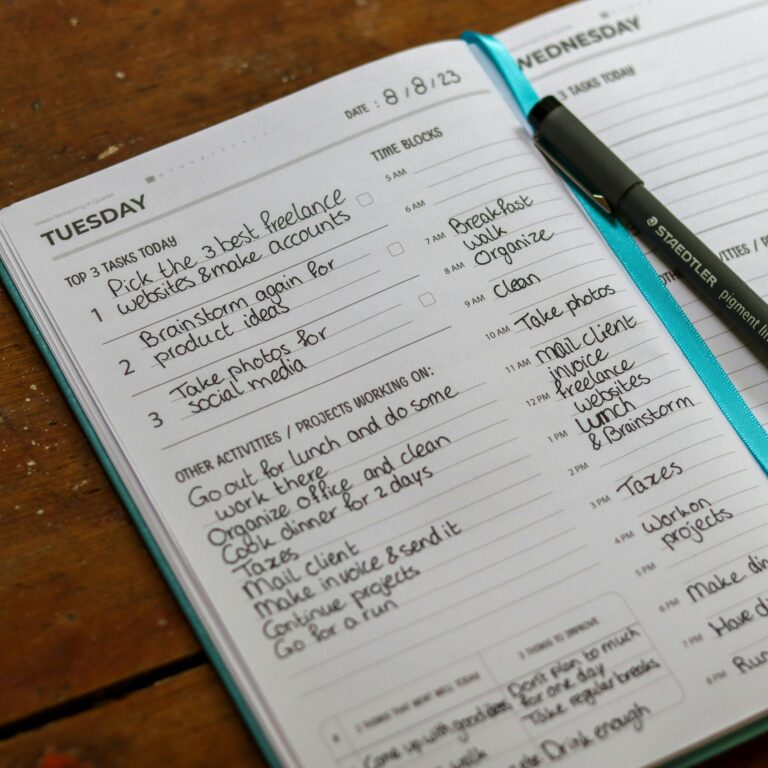 DATE: 8/8/23
Weeks Remaining in Quarter
TUESDAY
TOP 3 TASKS TODAY
1 Pick the 3 best freelance
websites & make accounts
2 Brainstorm again for
product ideas
3 Take photos for
social media
OTHER ACTIVITIES / PROJECTS WORKING ON:
Go out for lunch and do some
work there
Organize office and clean
Cook dinner for 2 days
Taxes
Mail client
Make invoice & send it
Continue projects
Go for a run
TIME BLOCKS
5 AM
6 AM
7 AM Breakfast
walk
8 AM Organize
9 AM Clean
10 AM Take photos
11 AM Mail client
invoice
12 PM freelance
websites
lunch
1 PM & Brainstorm
2 PM
3 PM Taxes
4 PM Work on
projects
5 PM
6 PM Make din
7 PM Have di
8 PM Run
3 THINGS THAT WENT WELL TODAY
Came up with good ideas
3 THINGS TO IMPROVE
Don't plan to much
for one day
Take regular breaks
Drink enough
WEDNESDAY
3 TASKS TODAY
ACTIVITIES / P
STAEDTLER
pigment lin